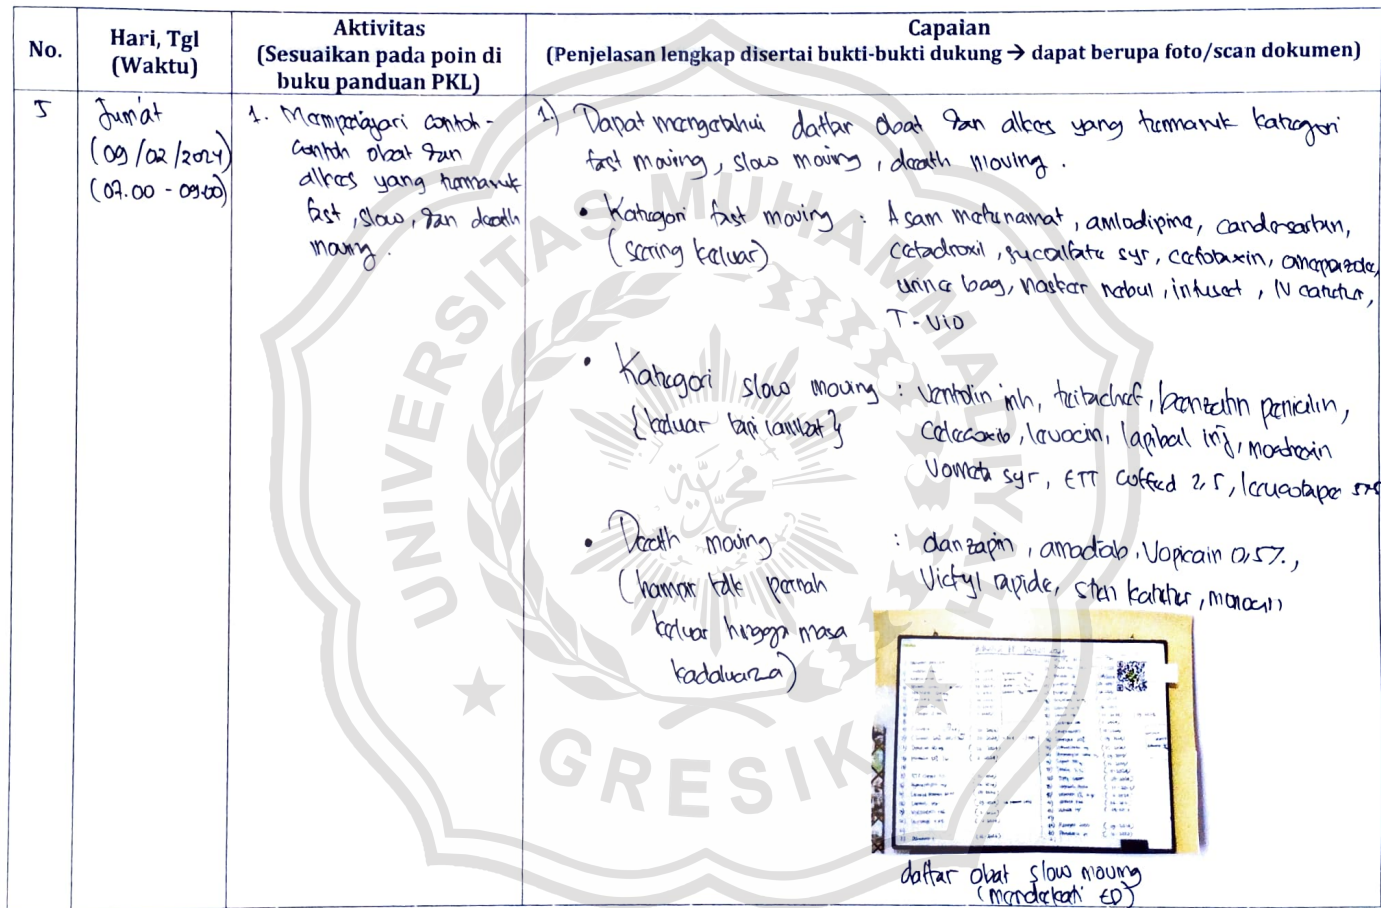 No.
Hari, Tgl
(Waktu)
Aktivitas
(Sesuaikan pada poin di
buku panduan PKL)
Capaian
(Penjelasan lengkap disertai bukti-bukti dukung → dapat berupa foto/scan dokumen)
5
Jum'at
(09/02/2024)
(07.00 - 09.00)
1. Mempelajari contoh-
contoh obat dan
alkes yang termasuk
fast, slow, dan death
moving.
1.) Dapat mengetahui daftar obat dan alkes yang termasuk kategori
fast moving, slow moving, death moving.
• Kategori fast moving :
(sering keluar)
Asam mefenamat, amlodipine, candesartan,
cefadroxil, sucralfate syr, cefotaxin, omeprazole,
urine bag, masker nebul, infuset, IV catheter,
T-Vio
• Kategori slow moving :
{keluar tapi lambat}
Ventolin inh, benzatin penicilin,
Celecoxib, levocin, lapibal inj,
Vometa syr, ETT cuffed 2,5,
• Death moving :
(hampir tdk pernah
keluar hingga masa
kadaluarza)
danzapin, amadiab, Vopicain 0,5%,
rapide, kateter,
daftar obat slow moving
(mendekati ED)
UNIVERSITAS MUHAMMADIYAH
GRESIK